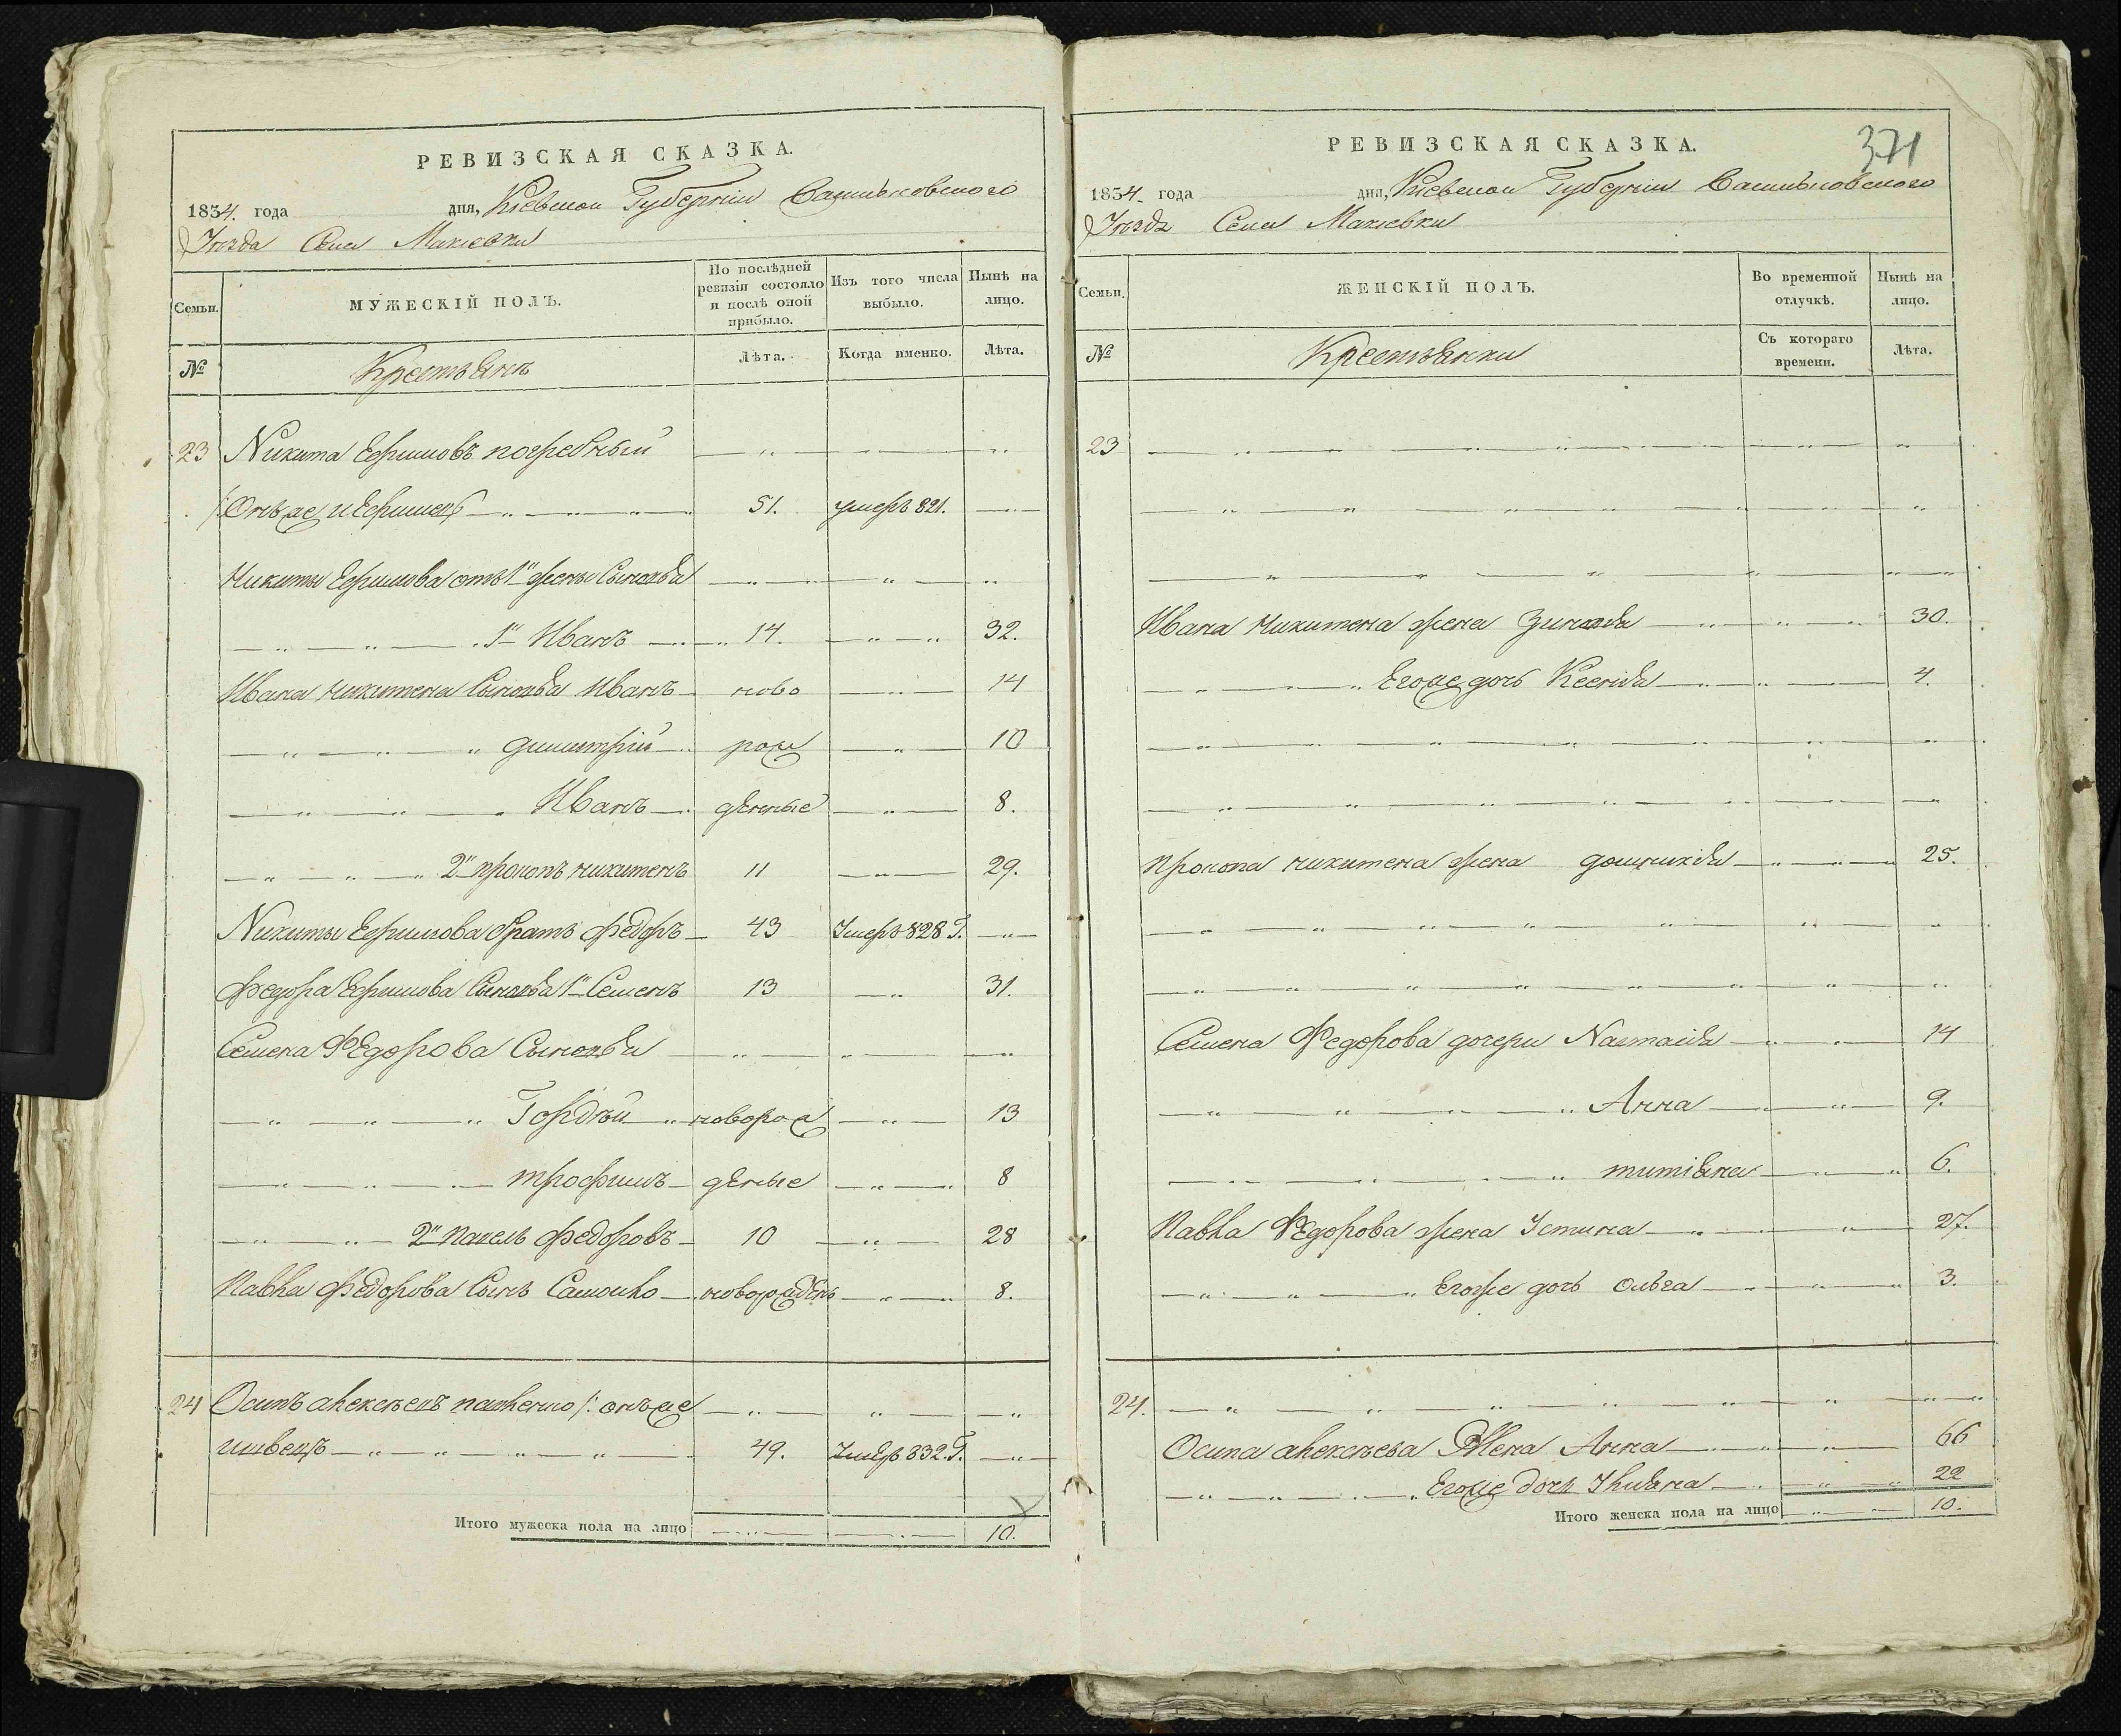 РЕВИЗСКАЯ СКАЗКА.
1834. года дня, Кіевской Губерніи Васильковскаго
Уѣзда Села Макіевки
Семьи.
МУЖЕСКІЙ ПОЛЪ.
По послѣдней ревизіи состояло и послѣ оной прибыло.
Изъ того числа выбыло.
Нынѣ на лицо.
№
Крестьянъ
Лѣта.
Когда именно.
Лѣта.
23 Никита Ефимовъ погребный
/:Онъже и Ефимецъ 51. умеръ 821.
Никиты Ефимова отъ 1й жены Сыновья
1й Иванъ 14. 32.
Ивана Никитена Сыновья Иванъ ново 14
Димитрій рож 10
Иванъ денные 8.
2й прокопъ Никитенъ 11 29.
Никиты Ефимова братъ Федоръ 43 Умеръ 828 Г.
Федора Ефимова Сыновья 1й Семенъ 13 31.
Семена Федорова Сыновья
Гордѣй новорож 13
трофимъ деные 8
2й Павелъ Федоровъ 10 28
Павла Федорова Сынъ Самойло новорожденъ 8.
24 Осипъ алексѣевъ /: онъже
швецъ 49. Умеръ 832. Г.
Итого мужеска пола на лицо 10.
371
РЕВИЗСКАЯ СКАЗКА.
1834. года дня, Кіевской Губерніи Васильковскаго
Уѣзда Села Макіевки
Семьи.
ЖЕНСКІЙ ПОЛЪ.
Во временной отлучкѣ.
Нынѣ на лицо.
№
Крестьянки
Съ котораго времени.
Лѣта.
23
Ивана Никитена жена Зиновья 30.
Егоже дочь Ксенія 4.
Прокопа Никитена жена домникія 25.
Семена Федорова дочери Настасія 14
Анна 9.
титіяна 6.
Павла Федорова жена Устина 27.
Егоже дочь Ольга 3.
24.
Осипа алексѣева Жена Анна 66
Егоже дочь Уліяна 22
Итого женска пола на лицо 10.